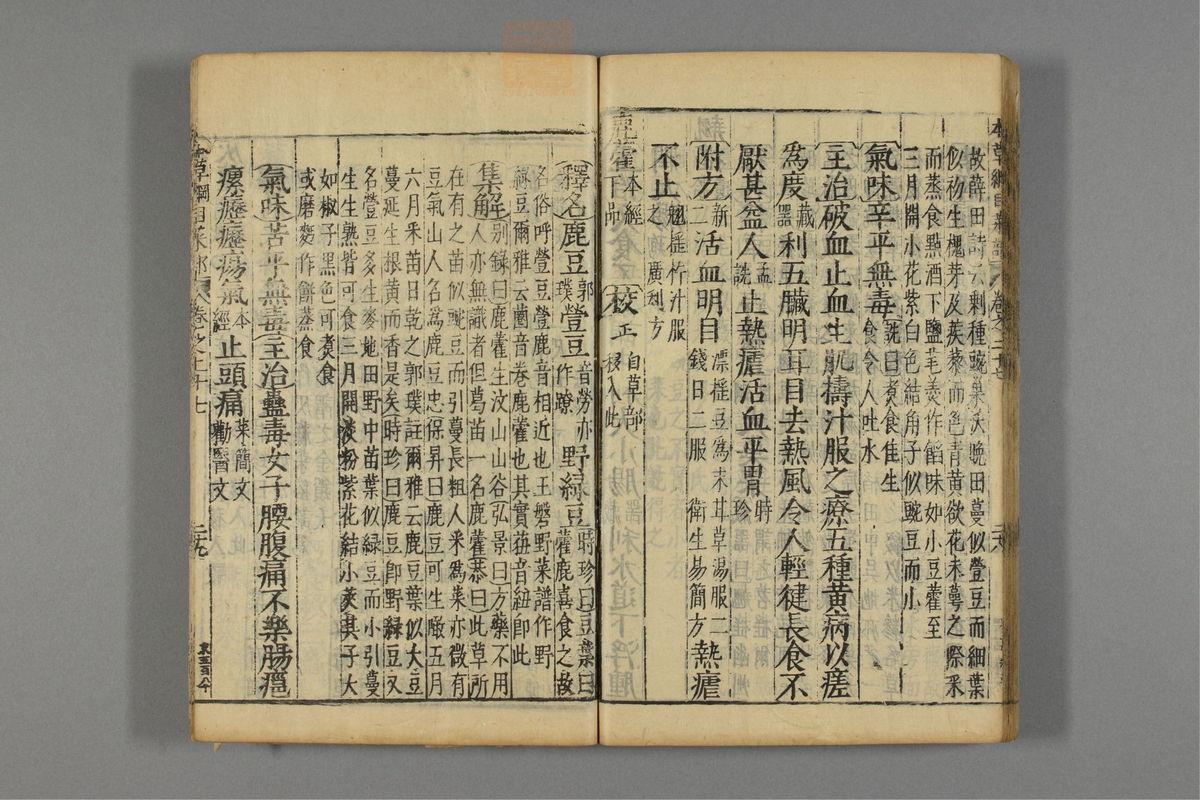 本草綱目菜部 卷之二十七 二八
故薛田詩云剩種豌巢沃晚田蔓似𧯆豆而細葉
似初生槐芽及蒺藜而色青黃欲花未蕚之際采
而蒸食點酒下鹽芼羹作餡味如小豆藿至
三月開小花紫白色結角子似豌豆而小
氣味辛平無毒詵曰煑食佳生食令人吐水
主治破血止血生肌擣汁服之療五種黃病以瘥
爲度藏器利五臟明耳目去熱風令人輕健長食不
厭甚益人孟詵止熱瘧活血平胃時珍
附方新二活血明目漂搖豆爲末甘草湯服二錢日二服 衛生易簡方熱瘧
不止翹搖杵汁服之 廣利方
鹿藿本經下品 校正自草部移入此
釋名鹿豆郭璞䝁豆音勞亦作蹽野綠豆時珍曰豆葉曰藿鹿喜食之故
名俗呼䝁豆䝁鹿音相近也王磐野菜譜作野
綠豆爾雅云蔨音卷鹿藿也其實莥音紐即此
集解别錄曰鹿藿生汶山山谷弘景曰方藥不用
人亦無識者但葛苗一名鹿藿恭曰此草所
在有之苗似豌豆而引蔓長粗人采爲菜亦微有
豆氣山人名爲鹿豆也保昇曰鹿豆可生噉五月
六月采苗日乾之郭璞註爾雅云鹿豆葉似大豆
蔓延生根黃而香是矣時珍曰鹿豆卽野綠豆又
名䝁豆多生麥地田野中苗葉似綠豆而小引蔓
生生熟皆可食三月開淡粉紫花結小莢其子大
如椒子黑色可煑食
或磨麪作餅蒸食
氣味苦平無毒主治蠱毒女子腰腹痛不樂腸癰
瘰癧瘍氣本經止頭痛梁簡文勸醫文
本草綱目菜部 卷之二十七 二九